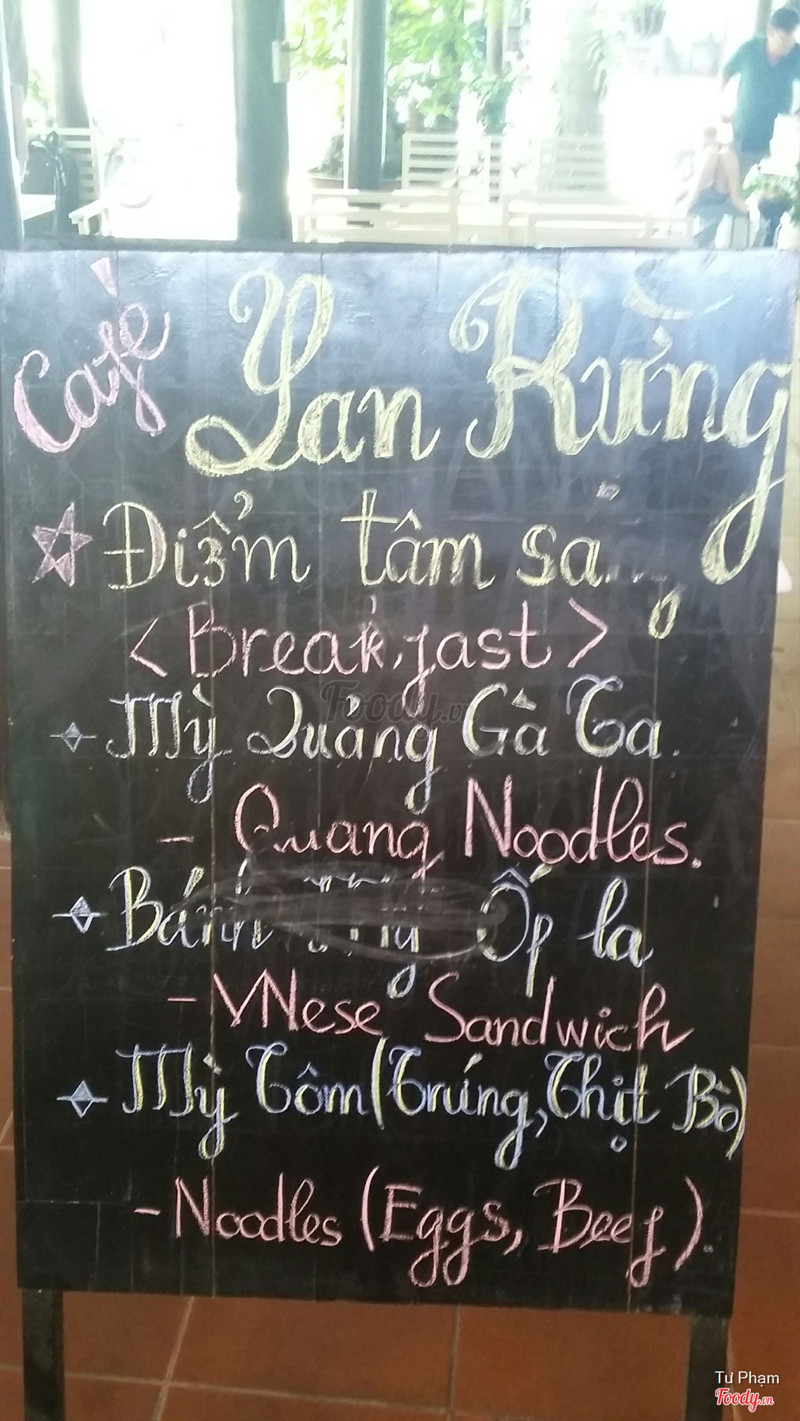 Cafè Yan Rừng
Điểm tâm
<Breakfast>
Mỳ Quảng Gà Ta.
- Quang Noodles.
Bánh Ốp la
- VNese Sandwich
Mỳ Tôm (Trứng, Thịt Bò)
- Noodles (Eggs, Beef).
Foody.vn
Tư Phạm
Foody.vn